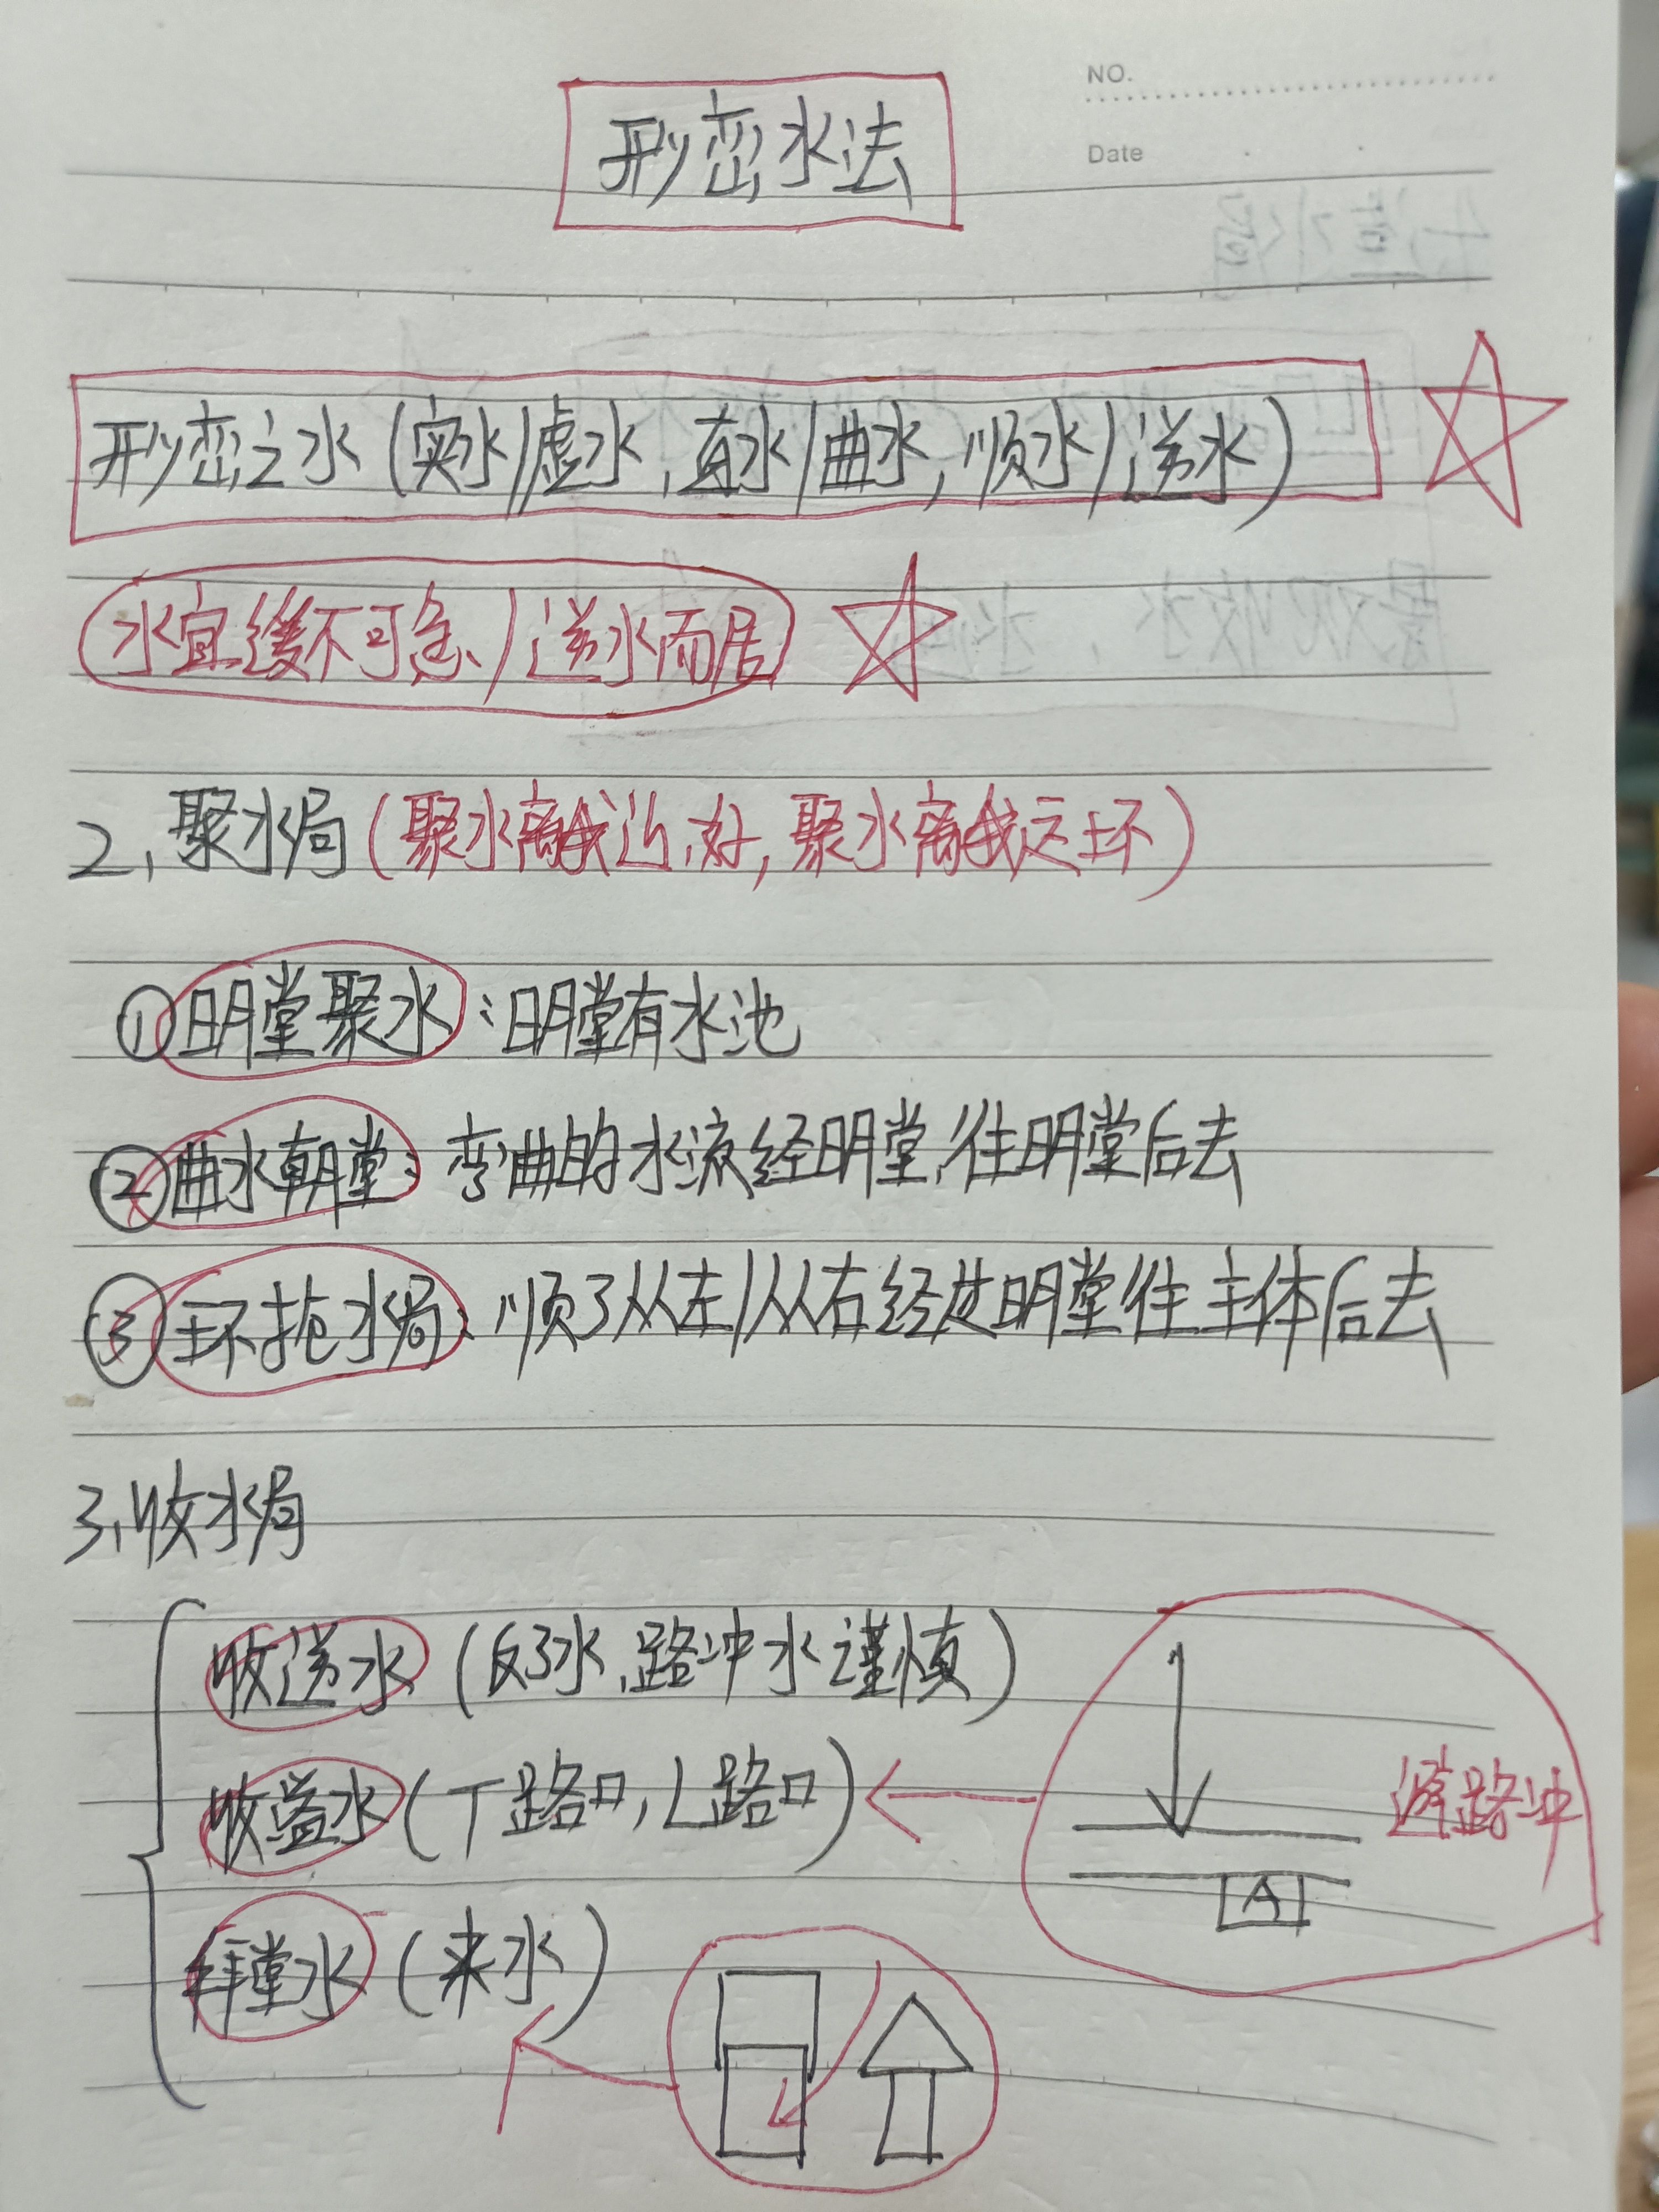 NO.
Date
形峦水法
形峦之水(实水/虚水,直水/曲水,顺水/逆水)
水宜缓不可急/逆水而居
2,聚水局(聚水离我近,好,聚水离我远坏)
①明堂聚水:明堂有水池
②曲水朝堂:弯曲的水流经明堂,往明堂后去
③环抱水局:顺弓从左/从右经过明堂往主体后去
3,收水局
收逆水(反弓水,路冲水谨慎)
收益水(T路口,L路口)
避路冲
A
拜堂水(来水)